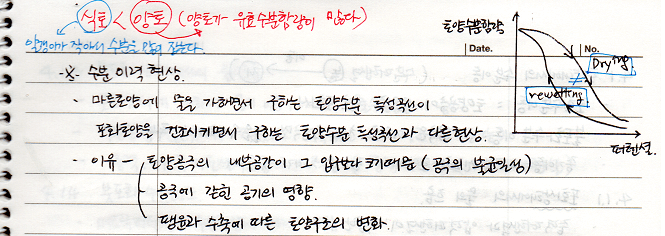 식토 < 양토 (양토가 유효수분함량이 많다)
알갱이가 작아서 수분을 많이 잡는다.
Date.
No.
-※- 수분 이력 현상.
· 마른토양에 물을 가하면서 구하는 토양수분 특성곡선이
포화토양을 건조시키면서 구하는 토양수분 특성곡선과 다른현상.
· 이유 - 토양공극의 내부공간이 그 입구보다 크기때문 (공극의 불균일성)
공극에 갇힌 공기의 영향.
팽윤과 수축에 따른 토양구조의 변화.
토양수분함량
Drying
≠
rewetting